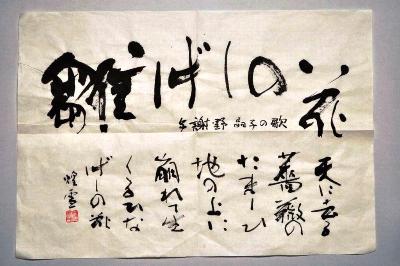 雛げしの花
与謝野晶子の歌
天に去る
薔薇の
たましひ
地の上に
崩れて生
くるひな
げしの花